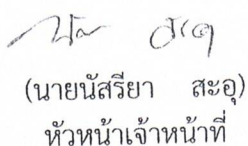 (นายนัสรียา สะอุ)
หัวหน้าเจ้าหน้าที่